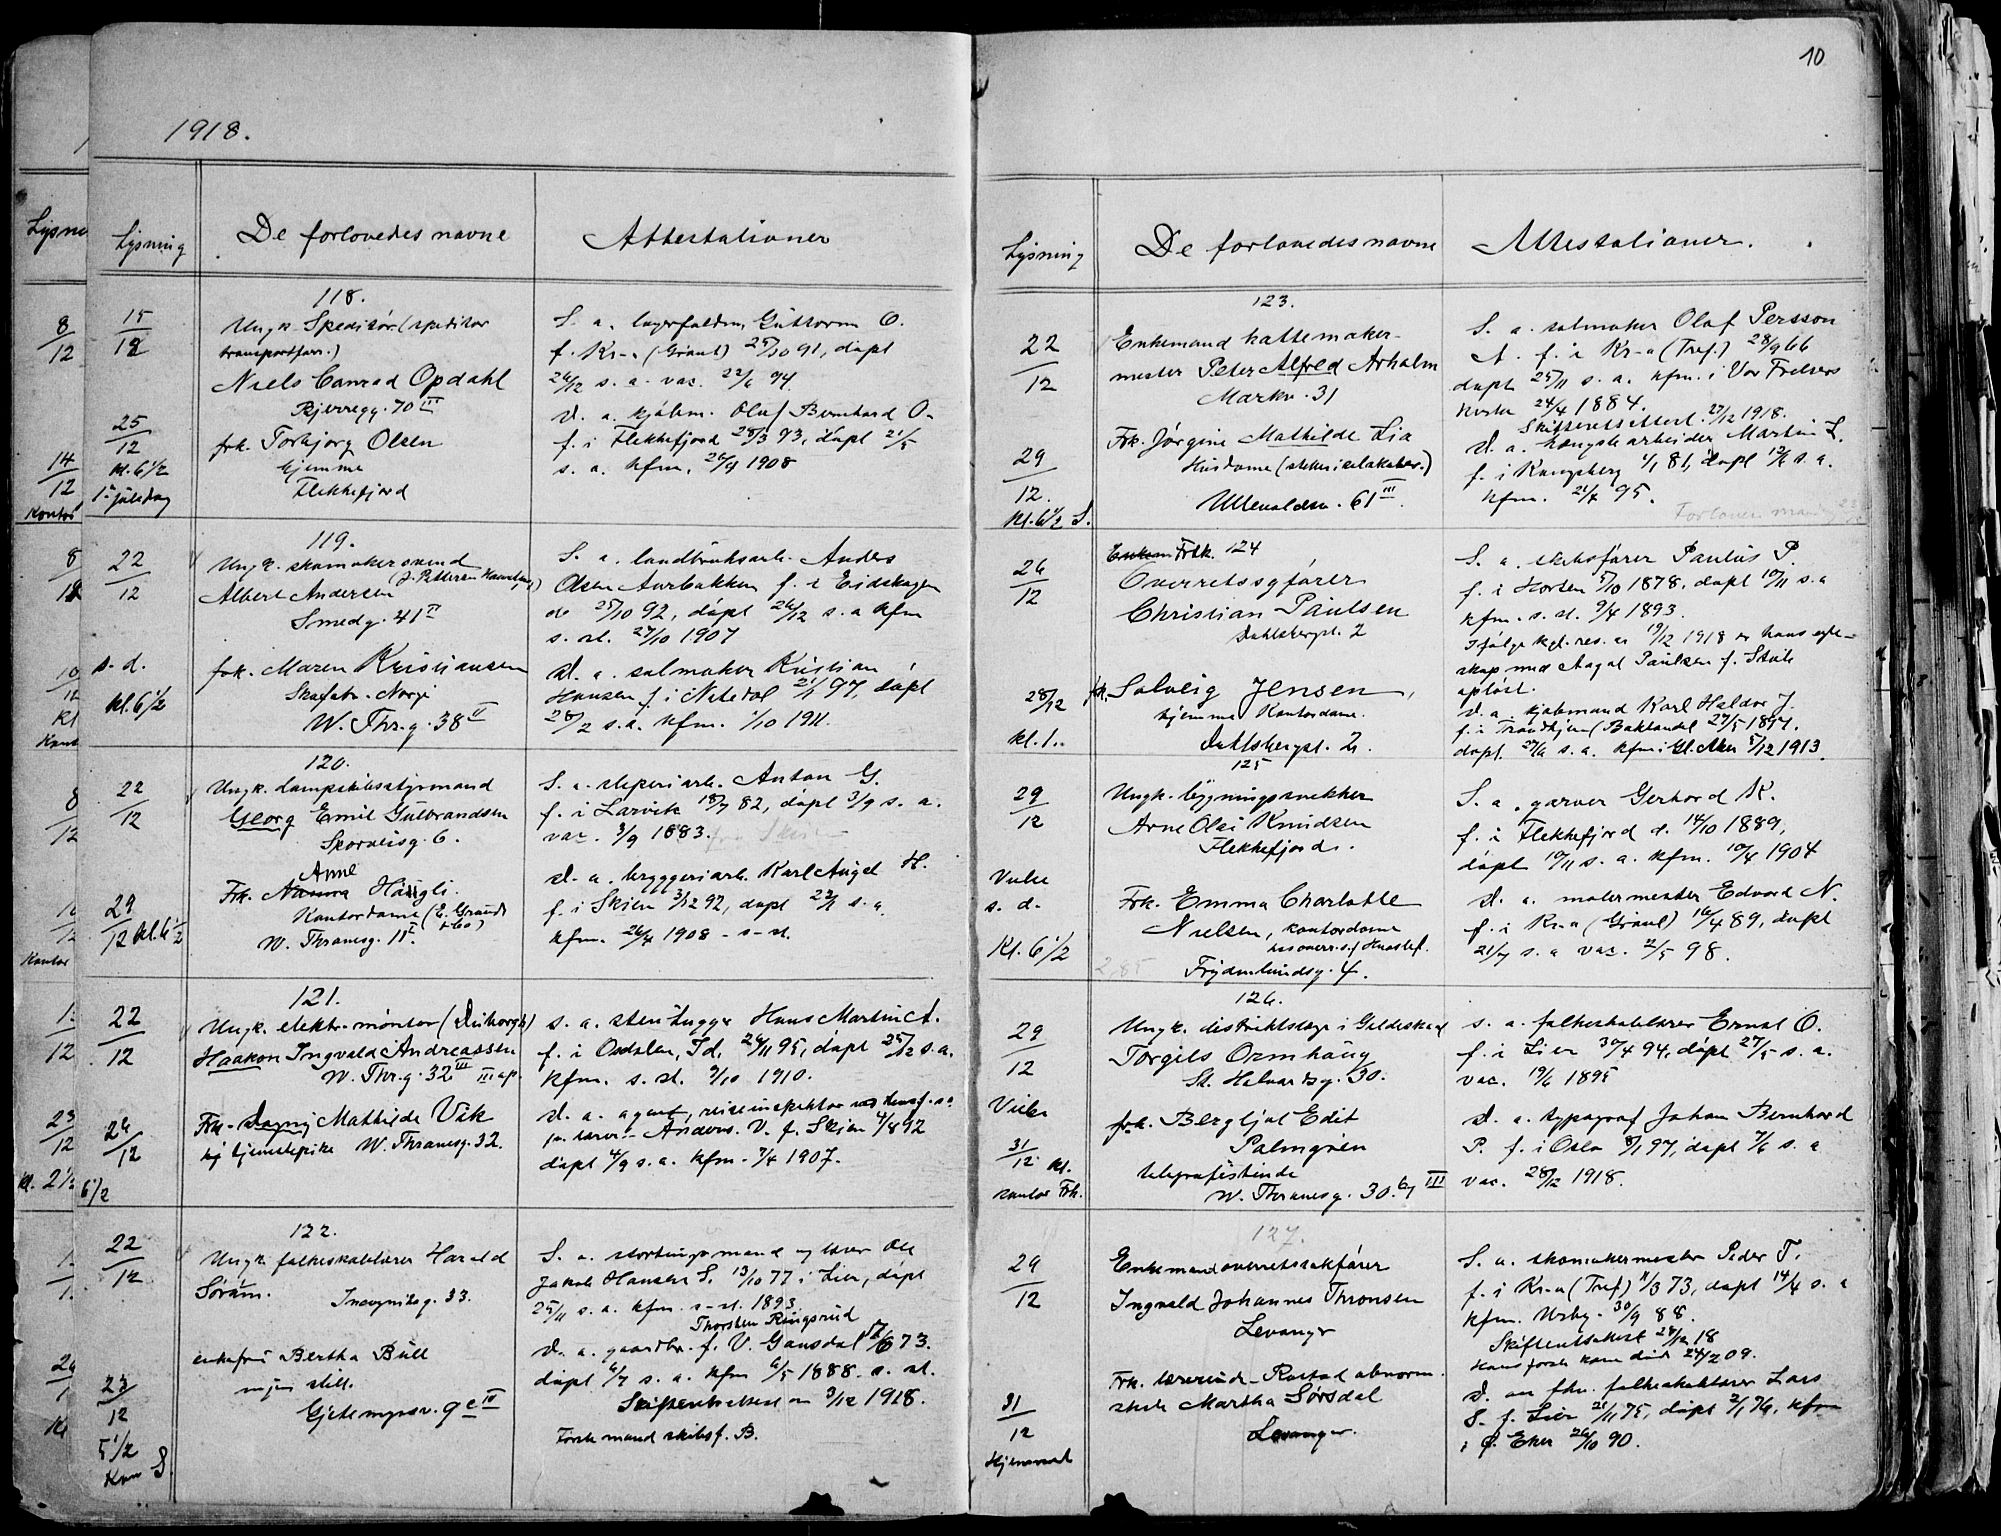 10
1918.
Lysning
De forlovedes navne
Attestationer
118.
15/12
Ungk. Speditør (speditør
transportforr.)
Niels Conrad Opdahl
Bjerregg. 70 III
25/12
kl. 6 1/2
1. juledag
frk. Torbjørg Olsen
hjemme
Flekkefjord
S. a. Guttorm O.
f. Kr-a (Grønl) 25/10 91, døpt
26/12 s. a. vac. 22/6 94.
D. a. Oluf Bernhard O.
f. i Flekkefjord 28/3 93, døpt 21/5
s. a. kfm. 26/9 1908
119.
22/12
Ungk. skomakersvend
(J. Pettersen
Albert Andersen
Smedg. 41 II
s. d.
kl. 6 1/2
frk. Maren Kristiansen
Skofabr. Norge
W. Thr. g. 38 II
S. a. landbruksarb. Anders
Olsen Aurbakken f. i Eidskogen
25/10 92, døpt 26/12 s. a. kfm
s. st. 27/10 1907
D. a. salmaker Kristian
Hansen f. i Nitedal 21/1 97, døpt
28/2 s. a. kfm. 1/10 1911.
120.
22/12
Ungk. dampskibsstyrmand
Georg Emil Gulbrandsen
Skovveisg. 6.
29/12 kl. 6 1/2
Anne
Frk. Haugli.
Kontordame
W. Thranesg. 11 I.
S. a. sliperiarb. Anton G.
f. i Larvik 18/7 82, døpt 3/9 s. a.
vac. 3/9 1883.
D. a. bryggeriarb. Karl August H.
f. i Skien 3/12 92, døpt s. a.
kfm. 26/4 1908 s. st.
121.
22/12
Ungk. elektr. montør
Haakon Ingvald Andreassen
W. Thr. g. 32 III III op.
26/12
6 1/2
Frk. Dagny Mathilde Vik
hj hjemstepike W. Thranesg. 32.
S. a. stenhugger Hans Martin A.
f. i Osdalen, Id, 24/11 95, døpt 25/12 s. a.
kfm. s. st. 9/10 1910.
D. a. agent, reiseinspektør
Anders V. f. Skien 4/8 92
døpt 4/9 s. a. kfm. 7/4 1907.
122.
22/12
Ungk. folkeskolelærer Harald
Sørum. Incognitog. 33.
23/12
5 1/2
enkefru Bertha Bull
ingen still.
Gjetemyrsv. 9 c IV
S. a. stortingsmand og lærer Ole
Jakob Hansen S. 13/10 77 i Lier, døpt
25/11 s. a. kfm. s. st. 1893.
Thorsten Ringsrud
D. a. gaardbr. f. V. Gausdal 73.
døpt 6/7 s. a. kfm 6/5 1888. s. st.
Skifteretsattest 3/12 1918.
Første mand skibsf. B.
Lysning
De forlovedes navne
Attestationer.
123.
22/12
Enkemand hattemaker-
mester Peter Alfred Arholm
Markv. 31
29/12.
kl. 6 1/2 S.
Frk. Jørgine Mathilde Lia
Husdame
Ullevaldsv. 61 III.
S. a. salmaker Olaf Persson
A. f. i Kr-a (Tref.) 28/9 66
døpt 25/11 s. a. kfm. i Vor Frelsers
kirke 24/4 1884.
Skifteretsattest. 27/12 1918.
D. a. arbeider Martin L.
f. i Kongsberg 1/1 81, døpt s. a.
kfm. 95.
124
26/12
Frk.
Overretssagfører
Christian Paulsen
Dahlsbergst. 2
28/12
kl. 1..
frk. Solveig Jensen,
hjemme Kontordame.
Dahlsbergst. 2.
S. a. skibsfører Paulus P.
f. i Horten 5/10 1878. døpt 10/11 s. a
kfm. s. st. 9/4 1893.
Ifølge kgl. res. av 19/12 1918 er hans egte-
skap med Aagot Paulsen f.
opløst.
D. a. Karl Haldor J.
f. i Trondhjem (Baklandet 27/5 1897.
døpt s. a. kfm i Gl. Aker 5/12 1913.
125
29/12
Ungk. bygningssnekker
Arne Olai Knudsen
Flekkefjord.
Vielse
s. d.
Kl. 6 1/2
Frk. Emma Charlotte
Nielsen, kontordame
Frydenlundsg. 4.
2,85
S. a. garver Gerhard K.
f. i Flekkefjord d. 14/10 1889,
døpt 10/11 s. a. kfm. 10/4 1904
D. a. malermester Edvard N.
f. i Kr-a (Grønl) 16/4 89, døpt
21/7 s. a vac. 2/5 98.
126.
29/12
Ungk. distriktslæge i Gildeskaal
Torgils Ormhaug
St. Halvardsg. 30.
Vielse
31/12 kl.
kontor Frk.
frk. Bergljot Edit
Palmgren
telegrafistinde
W. Thranesg. 30. III
S. a. folkeskolelærer Ernst O.
f. i Lier 30/4 94, døpt 27/5 s. a.
vac. 19/6 1895
D. a. typograf Johan Bernhard
P. f. i Oslo 8/1 97, døpt 7/6 s. a
vac. 28/12 1918.
127.
29/12
Enkemand overretssakfører
Ingvald Johannes Thronsen
Levanger
31/12
Frk. lærerinde Rostad abnorm.
skole Martha Sørsdal
Levanger.
S. a. skomakermester Peder T.
f. i Kr-a (Tref) 11/3 73, døpt 14/4 s. a
kfm. Urby. 30/9 88.
Skifteretsattest 28/12 18
Hans første kone død 24/2 09.
D. av fhv. folkeskolelærer Lars
S. f. Lier 21/11 75, døpt 2/1 76, kfm
i Ø. Eker 26/10 90.